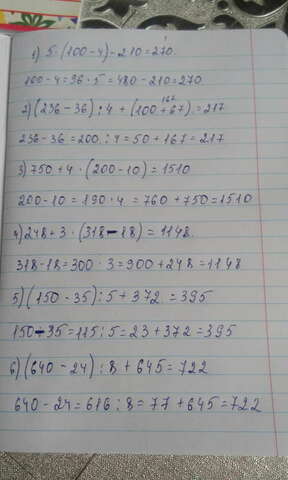 1) 5 · (100 - 4) - 210 = 270.
100 - 4 = 96 · 5 = 480 - 210 = 270.
167
2) (236 - 36) : 4 + (100 + 67) = 217
236 - 36 = 200 : 4 = 50 + 167 = 217
3) 750 + 4 · (200 - 10) = 1510
200 - 10 = 190 · 4 = 760 + 750 = 1510
4) 248 + 3 · (318 - 18) = 1148.
318 - 18 = 300 · 3 = 900 + 248 = 1148
5) (150 - 35) : 5 + 372 = 395
150 - 35 = 115 : 5 = 23 + 372 = 395
6) (640 - 24) : 8 + 645 = 722
640 - 24 = 616 : 8 = 77 + 645 = 722